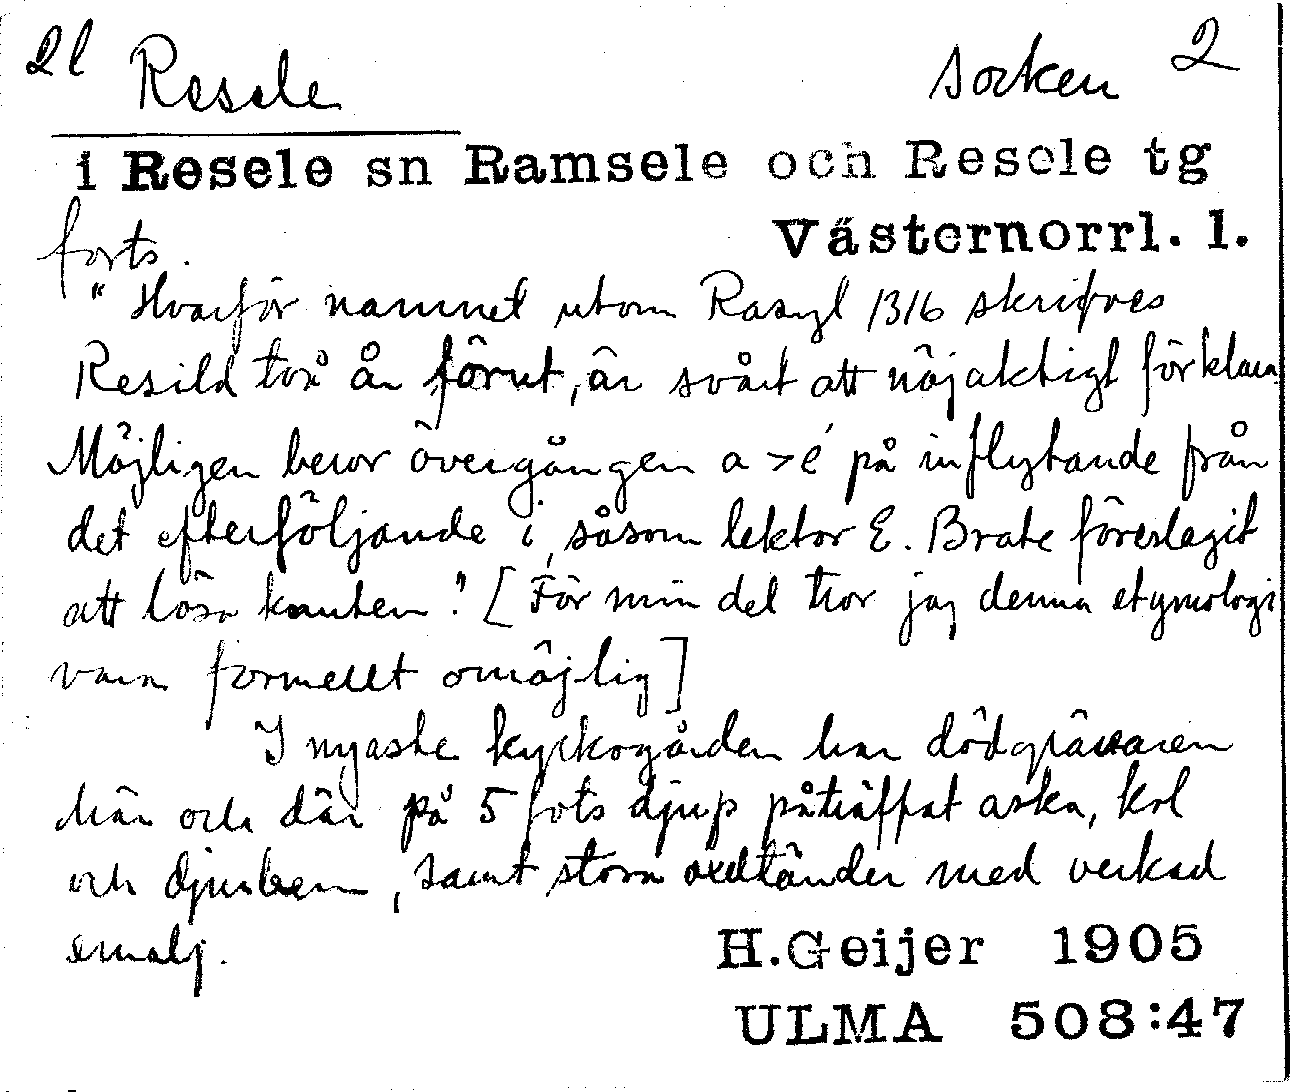 2l Resele socken 2
i Resele sn Ramsele och Resele tg
Västernorrl. l.
forts.
"Hvarför namnet utom Rasyl 1316 skrifves
Resild två år förut, är svårt att nöjaktigt förklara
Möjligen beror övergången a > e på inflytande från
det efterföljande i, såsom lektor E. Brate föreslagit
att lösa knuten." [För min del tror jag denna etymologi
vara formellt omöjlig]
I nyaste kyrkogården har dödgrävaren
här och där på 5 fots djup påträffat aska, kol
och djurben, samt stora oxeltänder med verkad
emalj.
H.Geijer 1905
ULMA 508:47